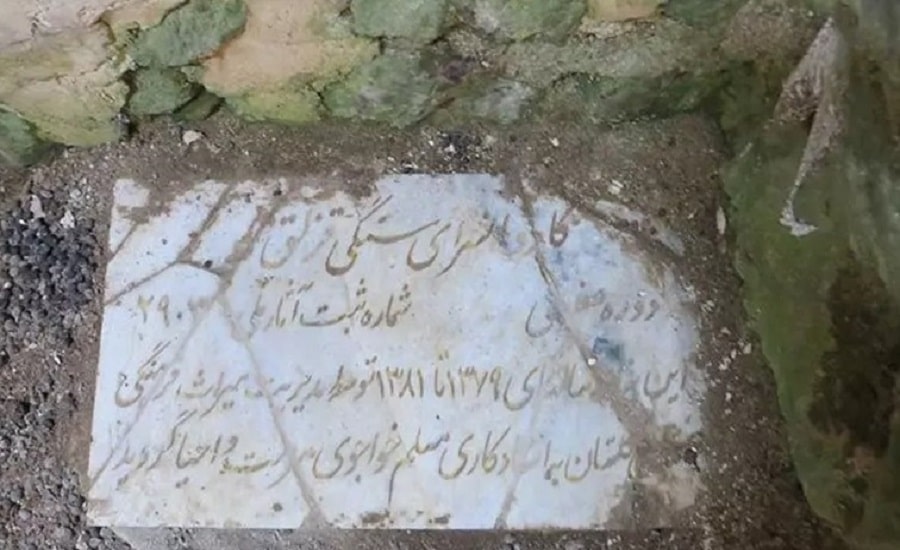 کاروانسرای سنگی قزلق
دوره صفوی شماره ثبت آثار ملی ۲۹۰۳
این بنا ای ۱۳۷۹ تا ۱۳۸۱ توسط مدیریت میراث فرهنگی
گلستان به استادکاری معلم خواجوی مرمت و احیا گردید